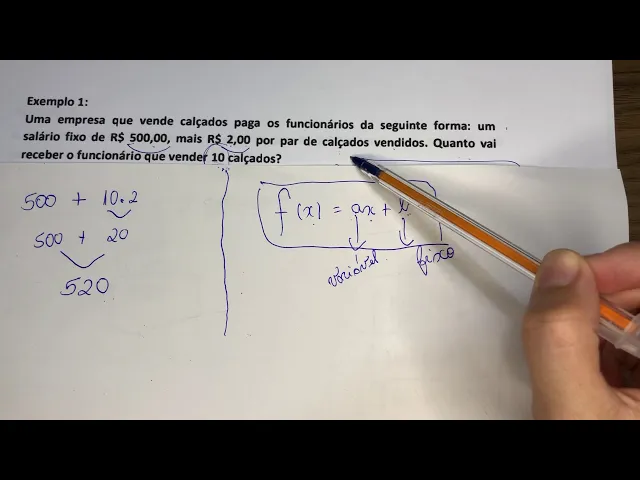 Exemplo 1:
Uma empresa que vende calçados paga os funcionários da seguinte forma: um
salário fixo de R$ 500,00, mais R$ 2,00 por par de calçados vendidos. Quanto vai
receber o funcionário que vender 10 calçados?
500 + 10.2
500 + 20
520
f (x) = ax + b
variável fixo